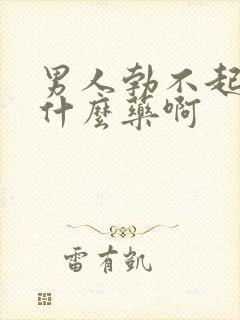 男人勃不起
什麼藥啊
雷有凱